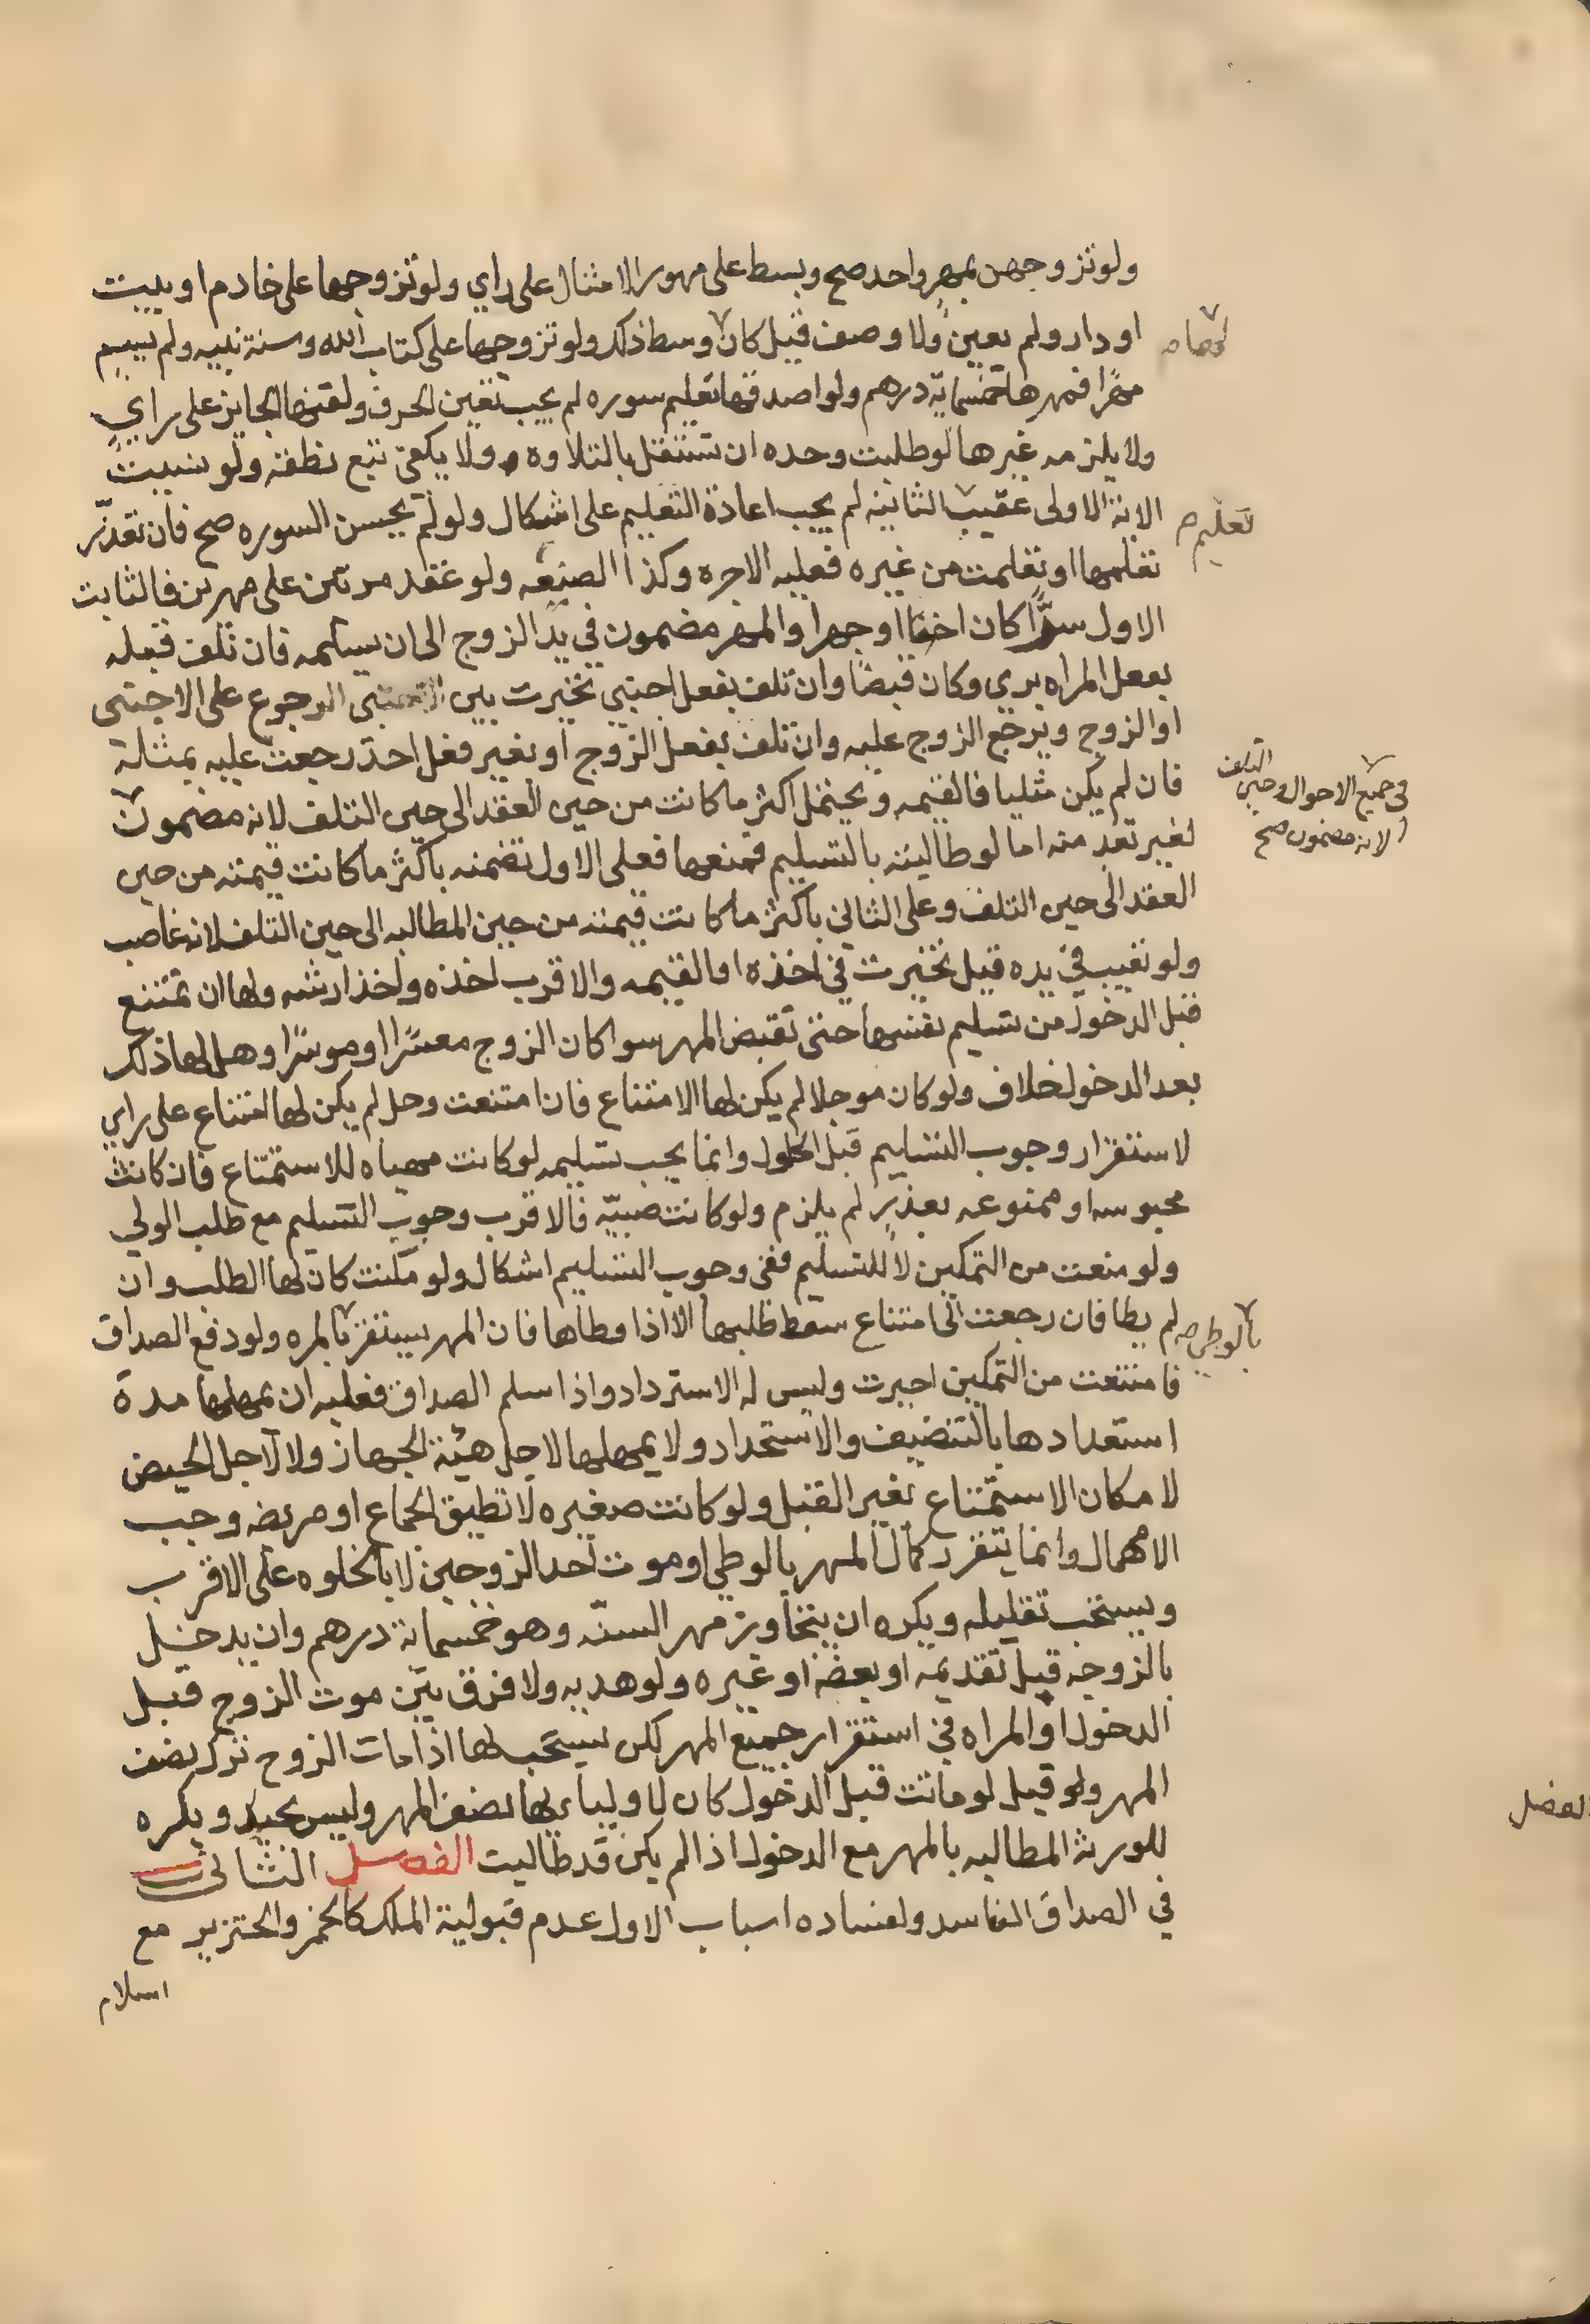 ولو تزوجهن بمهر واحد صح وبسط على مهور الامثال على راي ولو تزوجها على خادم او بيت
او دار ولم يعين ولا وصف قيل كان وسط ذلك ولو تزوجها على كتاب الله وسنة نبيه ولم يسم
لها صح
مهرا فمهرها خمسماية درهم ولو اصدقها تعليم سوره لم يجب تعين الحرف ولقنها الجايز على راي
ولا يلزمه غيرها لو طلبت وحده ان تستقل بالتلاوه ولا يكفي تتبع نطقه ولو نسيت
الاية الاولى عقيب الثانية لم يجب اعادة التعليم على اشكال ولو لم يحسن السوره صح فان تعذر
تعليم
تعلمها او تعلمت من غيره فعليه الاجره وكذا الصنعه ولو عقد مرتين على مهرين فالثابت
الاول سرا كان اخفا او جهرا والمهر مضمون في يد الزوج الى ان يسلمه فان تلف قبله
بفعل المراه بري وكان قبضا وان تلف بفعل اجنبي تخيرت بين الرجوع على الاجنبي
او الزوج ويرجع الزوج عليه وان تلف بفعل الزوج او بغير فعل احد رجعت عليه بمثله
فان لم يكن مثليا فالقيمه ويحتمل اكثر ما كانت من حين العقد الى حين التلف لانه مضمون
في جميع الاحوال وحين التلف
لانه مضمون صح
لغير تعد منه اما لو طالبته بالتسليم فمنعها فعلى الاول تضمنه باكثر ما كانت قيمته من حين
العقد الى حين التلف وعلى الثاني باكثر ما كانت قيمته من حين المطالبه الى حين التلف لانه غاصب
ولو تعيب في يده قيل تخيرت في اخذه او القيمه والاقرب اخذه واخذ ارشه ولها ان تمتنع
قبل الدخول من تسليم نفسها حتى تقبض المهر سوا كان الزوج معسرا او موسرا وهل لها ذلك
بعد الدخول خلاف ولو كان موجلا لم يكن لها الامتناع فان امتنعت وحل لم يكن لها امتناع على راي
لاستقرار وجوب التسليم قبل الحلول وانما يجب تسليمه لو كانت مهياه للاستمتاع فان كانت
محبوسه او ممنوعه بعذر لم يلزم ولو كانت صبيه فالاقرب وجوب التسليم مع طلب الولي
ولو منعت من التمكين لا للتسليم ففي وجوب التسليم اشكال ولو مكنت كان لها الطلب وان
لم يطا فان رجعت الى امتناع سقط طلبها الا اذا وطاها فان المهر يستقر بالمره ولو دفع الصداق
بالوطي صح
فامتنعت من التمكين اجبرت وليس له الاسترداد واذا سلم الصداق فعليه ان يمهلها مدة
استعدادها بالتنضيف والاستحداد ولا يمهلها لاجل هيئة الجهاز ولا لاجل الحيض
لامكان الاستمتاع بغير القبل ولو كانت صغيره لا تطيق الجماع او مريضه وجب
الامهال وانما يتقرر كمال المهر بالوطي او موت احد الزوجين لا بالخلوه على الاقرب
ويستحب تقليله ويكره ان يتجاوز مهر السنه وهو خمسماية درهم وان يدخل
بالزوجه قبل تقديمه او بعضه او غيره ولو هديه ولا فرق بين موت الزوج قبل
الدخول او المراه في استقرار جميع المهر لكن يستحب لها اذا مات الزوج ترك نصف
المهر ولو قيل لو ماتت قبل الدخول كان لاوليايها نصف المهر وليس بجيد ويكره
للورثة المطالبه بالمهر مع الدخول اذا لم يكن قد طالبت الفصل الثاني
في الصداق الفاسد ولفساده اسباب الاول عدم قبولية الملك كالخمر والخنزير مع
اسلام
الفصل